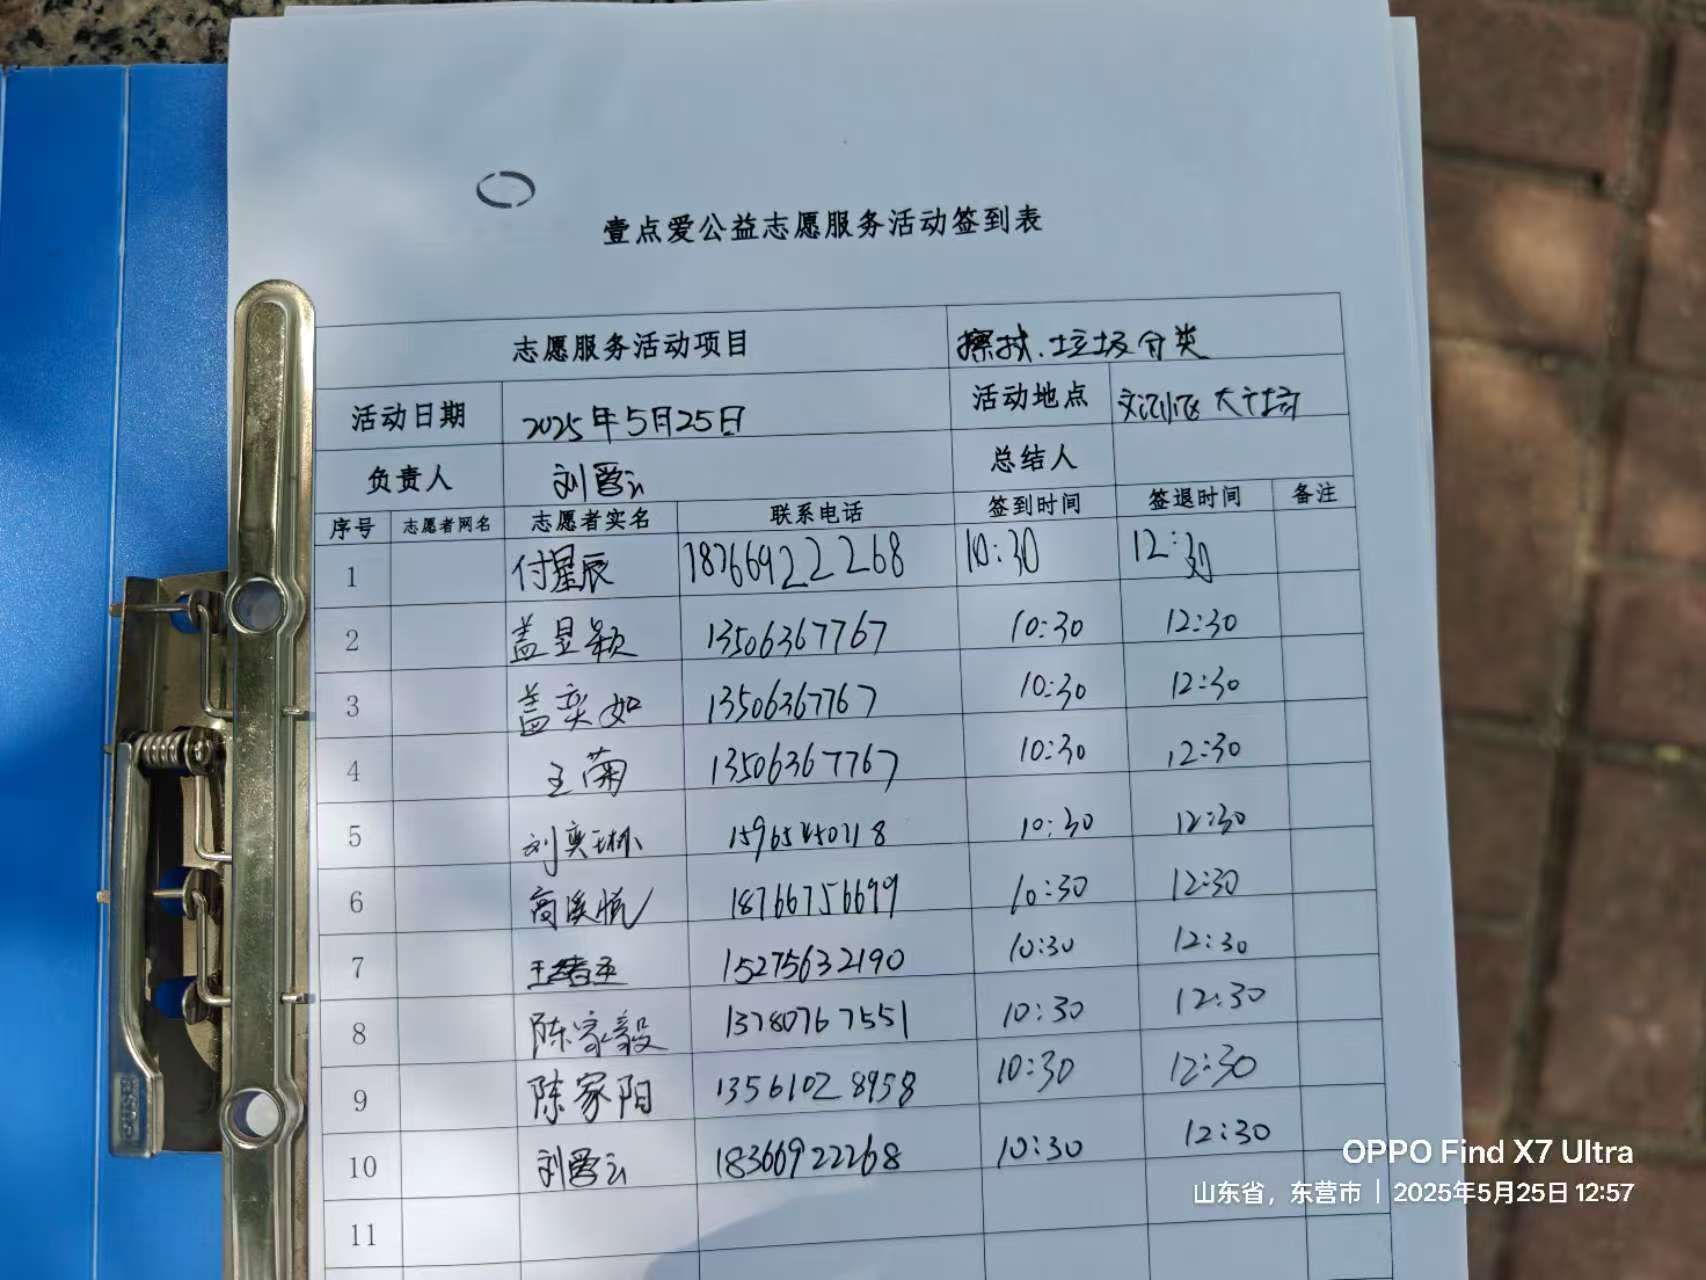 壹点爱公益志愿服务活动签到表
志愿服务活动项目 垃圾分类
活动日期 2025年5月25日 活动地点
负责人 刘 总结人
序号 志愿者网名 志愿者实名 联系电话 签到时间 签退时间 备注
1 付星辰 18766922268 10:30 12:30
2 盖昱颖 13506367767 10:30 12:30
3 盖奕如 13506367767 10:30 12:30
4 王菊 13506367767 10:30 12:30
5 刘奕琳 10:30 12:30
6 高溪悦 18766756699 10:30 12:30
7 15275632190 10:30 12:30
8 陈家毅 13780767551 10:30 12:30
9 陈家阳 13561028958 10:30 12:30
10 刘 18366922268 10:30 12:30
11
OPPO Find X7 Ultra
山东省，东营市 | 2025年5月25日 12:57